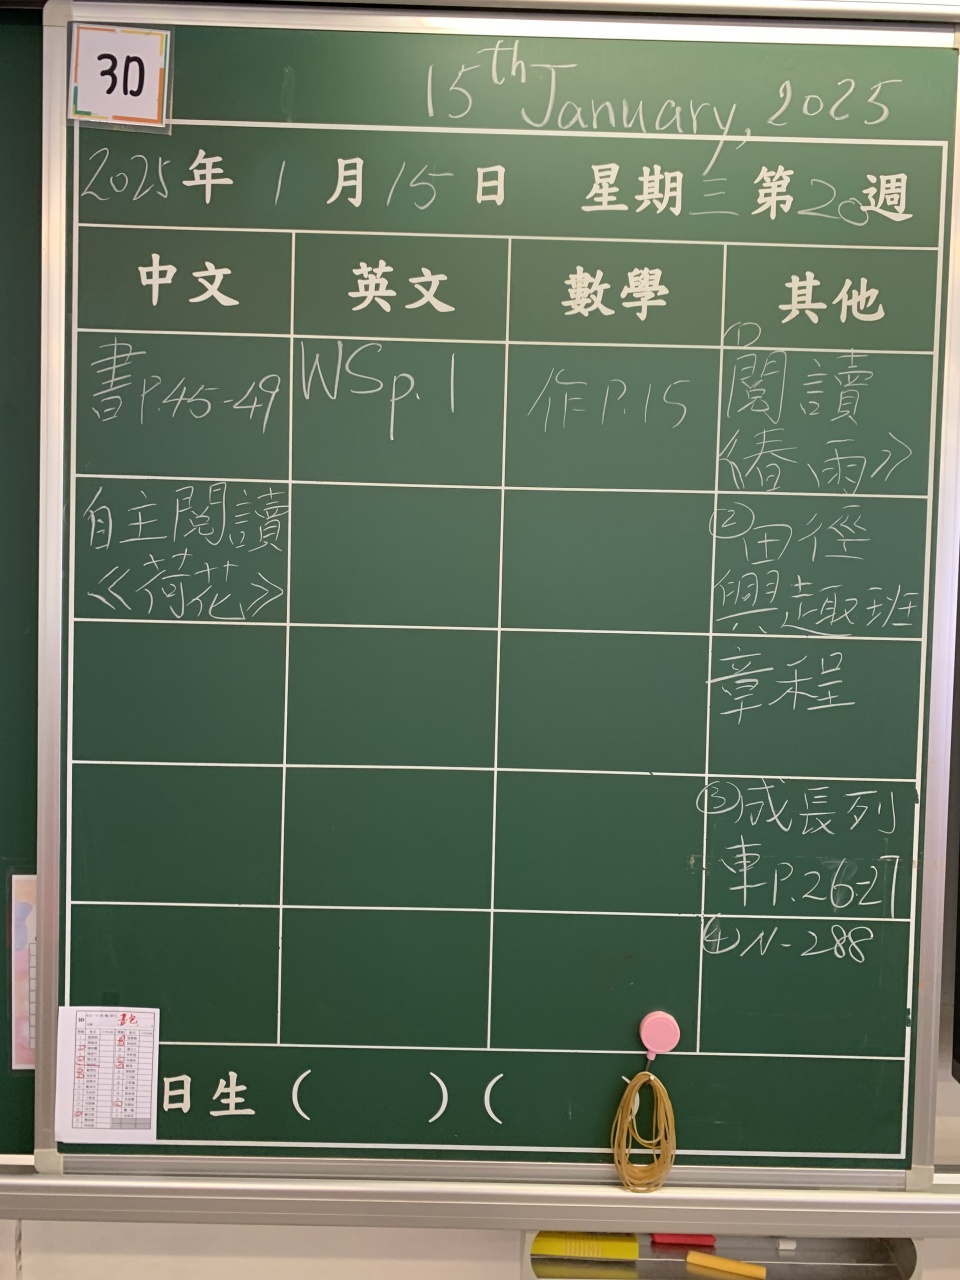 3D
15th January, 2025
2025年 1 月 15 日 星期三 第20週
中文 英文 數學 其他
書P.45-49
WS p. 1
作P.15
① 閱讀
《春雨》
自主閱讀
《荷花》
②田徑
興趣班
章程
③成長列
車P.26-27
④N-288
日生 ( ) ( )